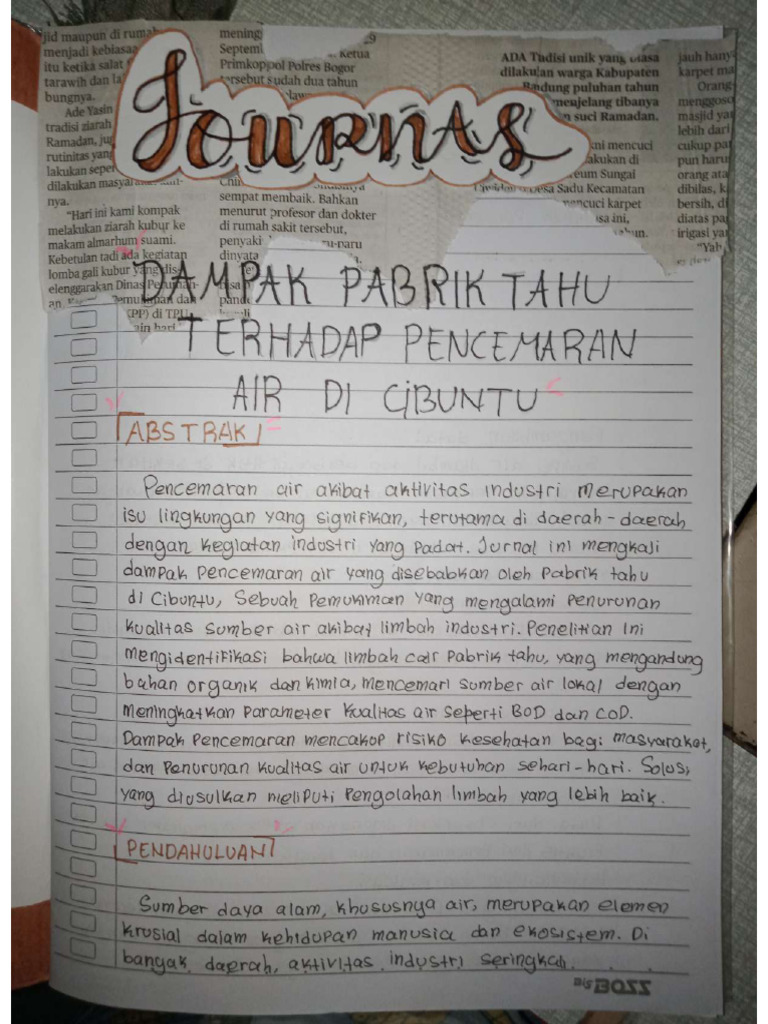 jid maupun di rumah
menjadi kebiasaa
itu ketika salat
tarawih dan la
bungnya.
Ade Yasin
tradisi ziarah
Ramadan, jug
rutinitas yang
lakukan seper
dilakukan masyara
nya.
"Hari ini kami kompak
melakukan ziarah kubur ke
makam almarhum suami.
Kebetulan tadi ada kegiatan
lomba gali kubur yang dis-
elenggarakan Dinas Permuk-
Pemukiman dan
(PP) di TPU
ain hari
mening
Septem
Ketua
Primkoppol Polres Bogor
tersebut sudah dua tahun
sempat membaik. Bahkan
menurut profesor dan dokter
di rumah sakit tersebut,
penyaki
ru-paru
dinyata
ADA Tadisi unik yang biasa
dilakukan warga Kabupaten
Bandung puluhan tahun
menjelang tibanya
n suci Ramadan.
ni mencuci
akukan di
eum Sungai
esa Sadu Kecamatan
encuci karpet
sa ini,
jauh hany
karpet ma
Orang
menggoso
masjid ya
lebih dari
cukup pa
pun haru
orang ata
dibilas, k
bersih, di
diatas pa
irigasi ya
"Yah
JOURNAS
DAMPAK PABRIK TAHU
TERHADAP PENCEMARAN
AIR DI CIBUNTU
ABSTRAK
Pencemaran air akibat aktivitas industri merupakan
isu lingkungan yang signifikan, terutama di daerah-daerah
dengan kegiatan industri yang padat. Jurnal ini mengkaji
dampak pencemaran air yang disebabkan oleh pabrik tahu
di Cibuntu, Sebuah Pemukiman yang mengalami Penurunan
kualitas sumber air akibat limbah industri. Penelitian ini
mengidentifikasi bahwa limbah cair pabrik tahu, yang mengandung
bahan organik dan kimia, mencemari sumber air lokal dengan
meningkatkan Parameter kualitas air seperti BOD dan COD.
Dampak Pencemaran mencakop risiko kesehatan bagi masyarakat,
dan Penurunan kualitas air untuk kebutuhan sehari-hari. Solusi
yang diusulkan meliputi Pengolahan limbah yang lebih baik.
PENDAHULUAN
Sumber daya alam, khususnya air, merupakan elemen
krusial dalam kehidupan manusia dan ekosistem. Di
banyak daerah, aktivitas industri seringkali
BIG BOSS